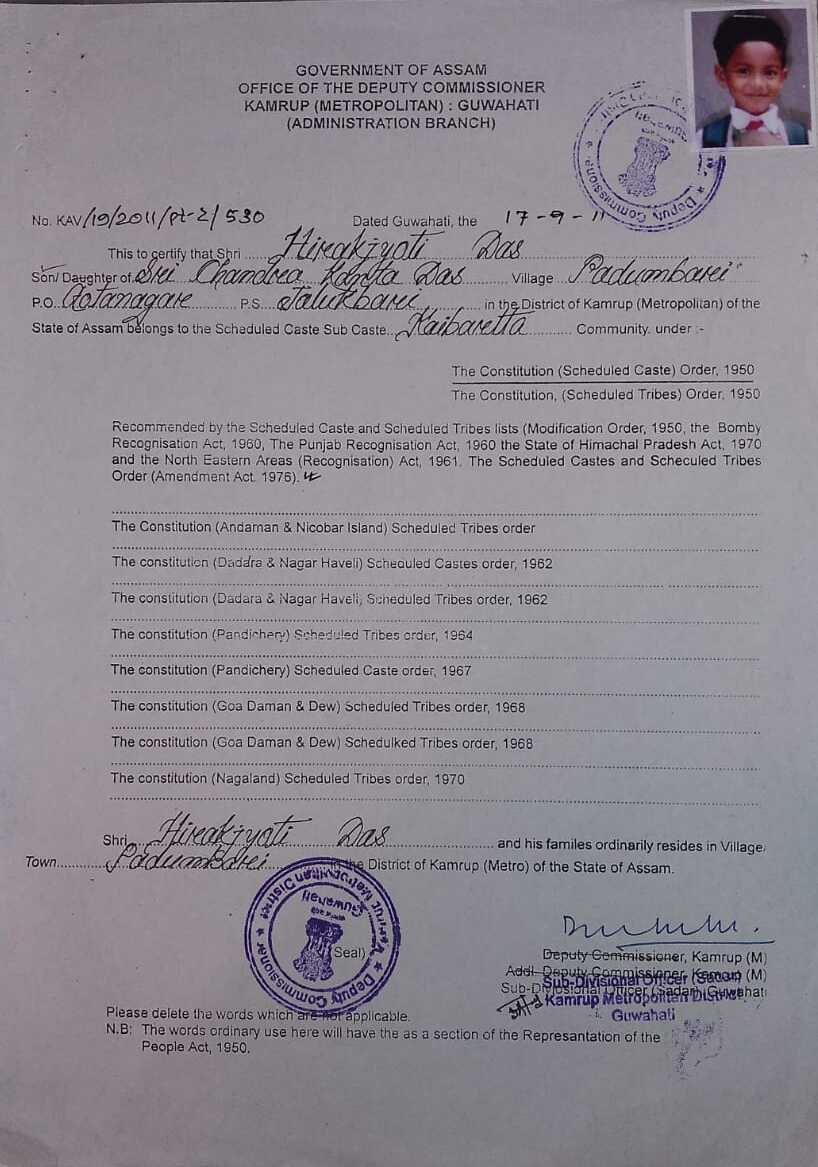 GOVERNMENT OF ASSAM
OFFICE OF THE DEPUTY COMMISSIONER
KAMRUP (METROPOLITAN) : GUWAHATI
(ADMINISTRATION BRANCH)
Deputy Commissioner
No. KAV/19/2011/pt-2/530 Dated Guwahati, the 17-9-11
This to certify that Shri ..... Hirakjyoti Das
Son/ Daughter of. Sri Chandra Kanta Das Village Padumbarei
P.O. Gotanagare P.S. Jalukbarei in the District of Kamrup (Metropolitan) of the
State of Assam belongs to the Scheduled Caste Sub Caste... Kaibaretta Community. under :-
The Constitution (Scheduled Caste) Order, 1950
The Constitution, (Scheduled Tribes) Order, 1950
Recommended by the Scheduled Caste and Scheduled Tribes lists (Modification Order, 1950, the Bomby
Recognisation Act, 1960, The Punjab Recognisation Act, 1960 the State of Himachal Pradesh Act, 1970
and the North Eastern Areas (Recognisation) Act, 1961. The Scheduled Castes and Scheculed Tribes
Order (Amendment Act. 1976).
The Constitution (Andaman & Nicobar Island) Scheduled Tribes order
The constitution (Dadara & Nagar Haveli) Scheduled Castes order, 1962
The constitution (Dadara & Nagar Haveli) Scheduled Tribes order, 1962
The constitution (Pandichery) Scheduled Tribes order, 1964
The constitution (Pandichery) Scheduled Caste order, 1967
The constitution (Goa Daman & Dew) Scheduled Tribes order, 1968
The constitution (Goa Daman & Dew) Schedulked Tribes order, 1968
The constitution (Nagaland) Scheduled Tribes order, 1970
Shri.... Hirakjyoti Das and his familes ordinarily resides in Village,
Town.... Padumbarei in the District of Kamrup (Metro) of the State of Assam.
Deputy Commissioner Kamrup Metropolitan District
Guwahati
Seal)
Deputy Commissioner, Kamrup (M)
Addl. Deputy Commissioner, Kamrup (M)
Sub-Divisional Officer (Sadar) Guwahati
Sub-Divisional Officer (Sadar)
Kamrup Metropolitan District
Guwahati
Please delete the words which are not applicable.
N.B: The words ordinary use here will have the as a section of the Represantation of the
People Act, 1950.